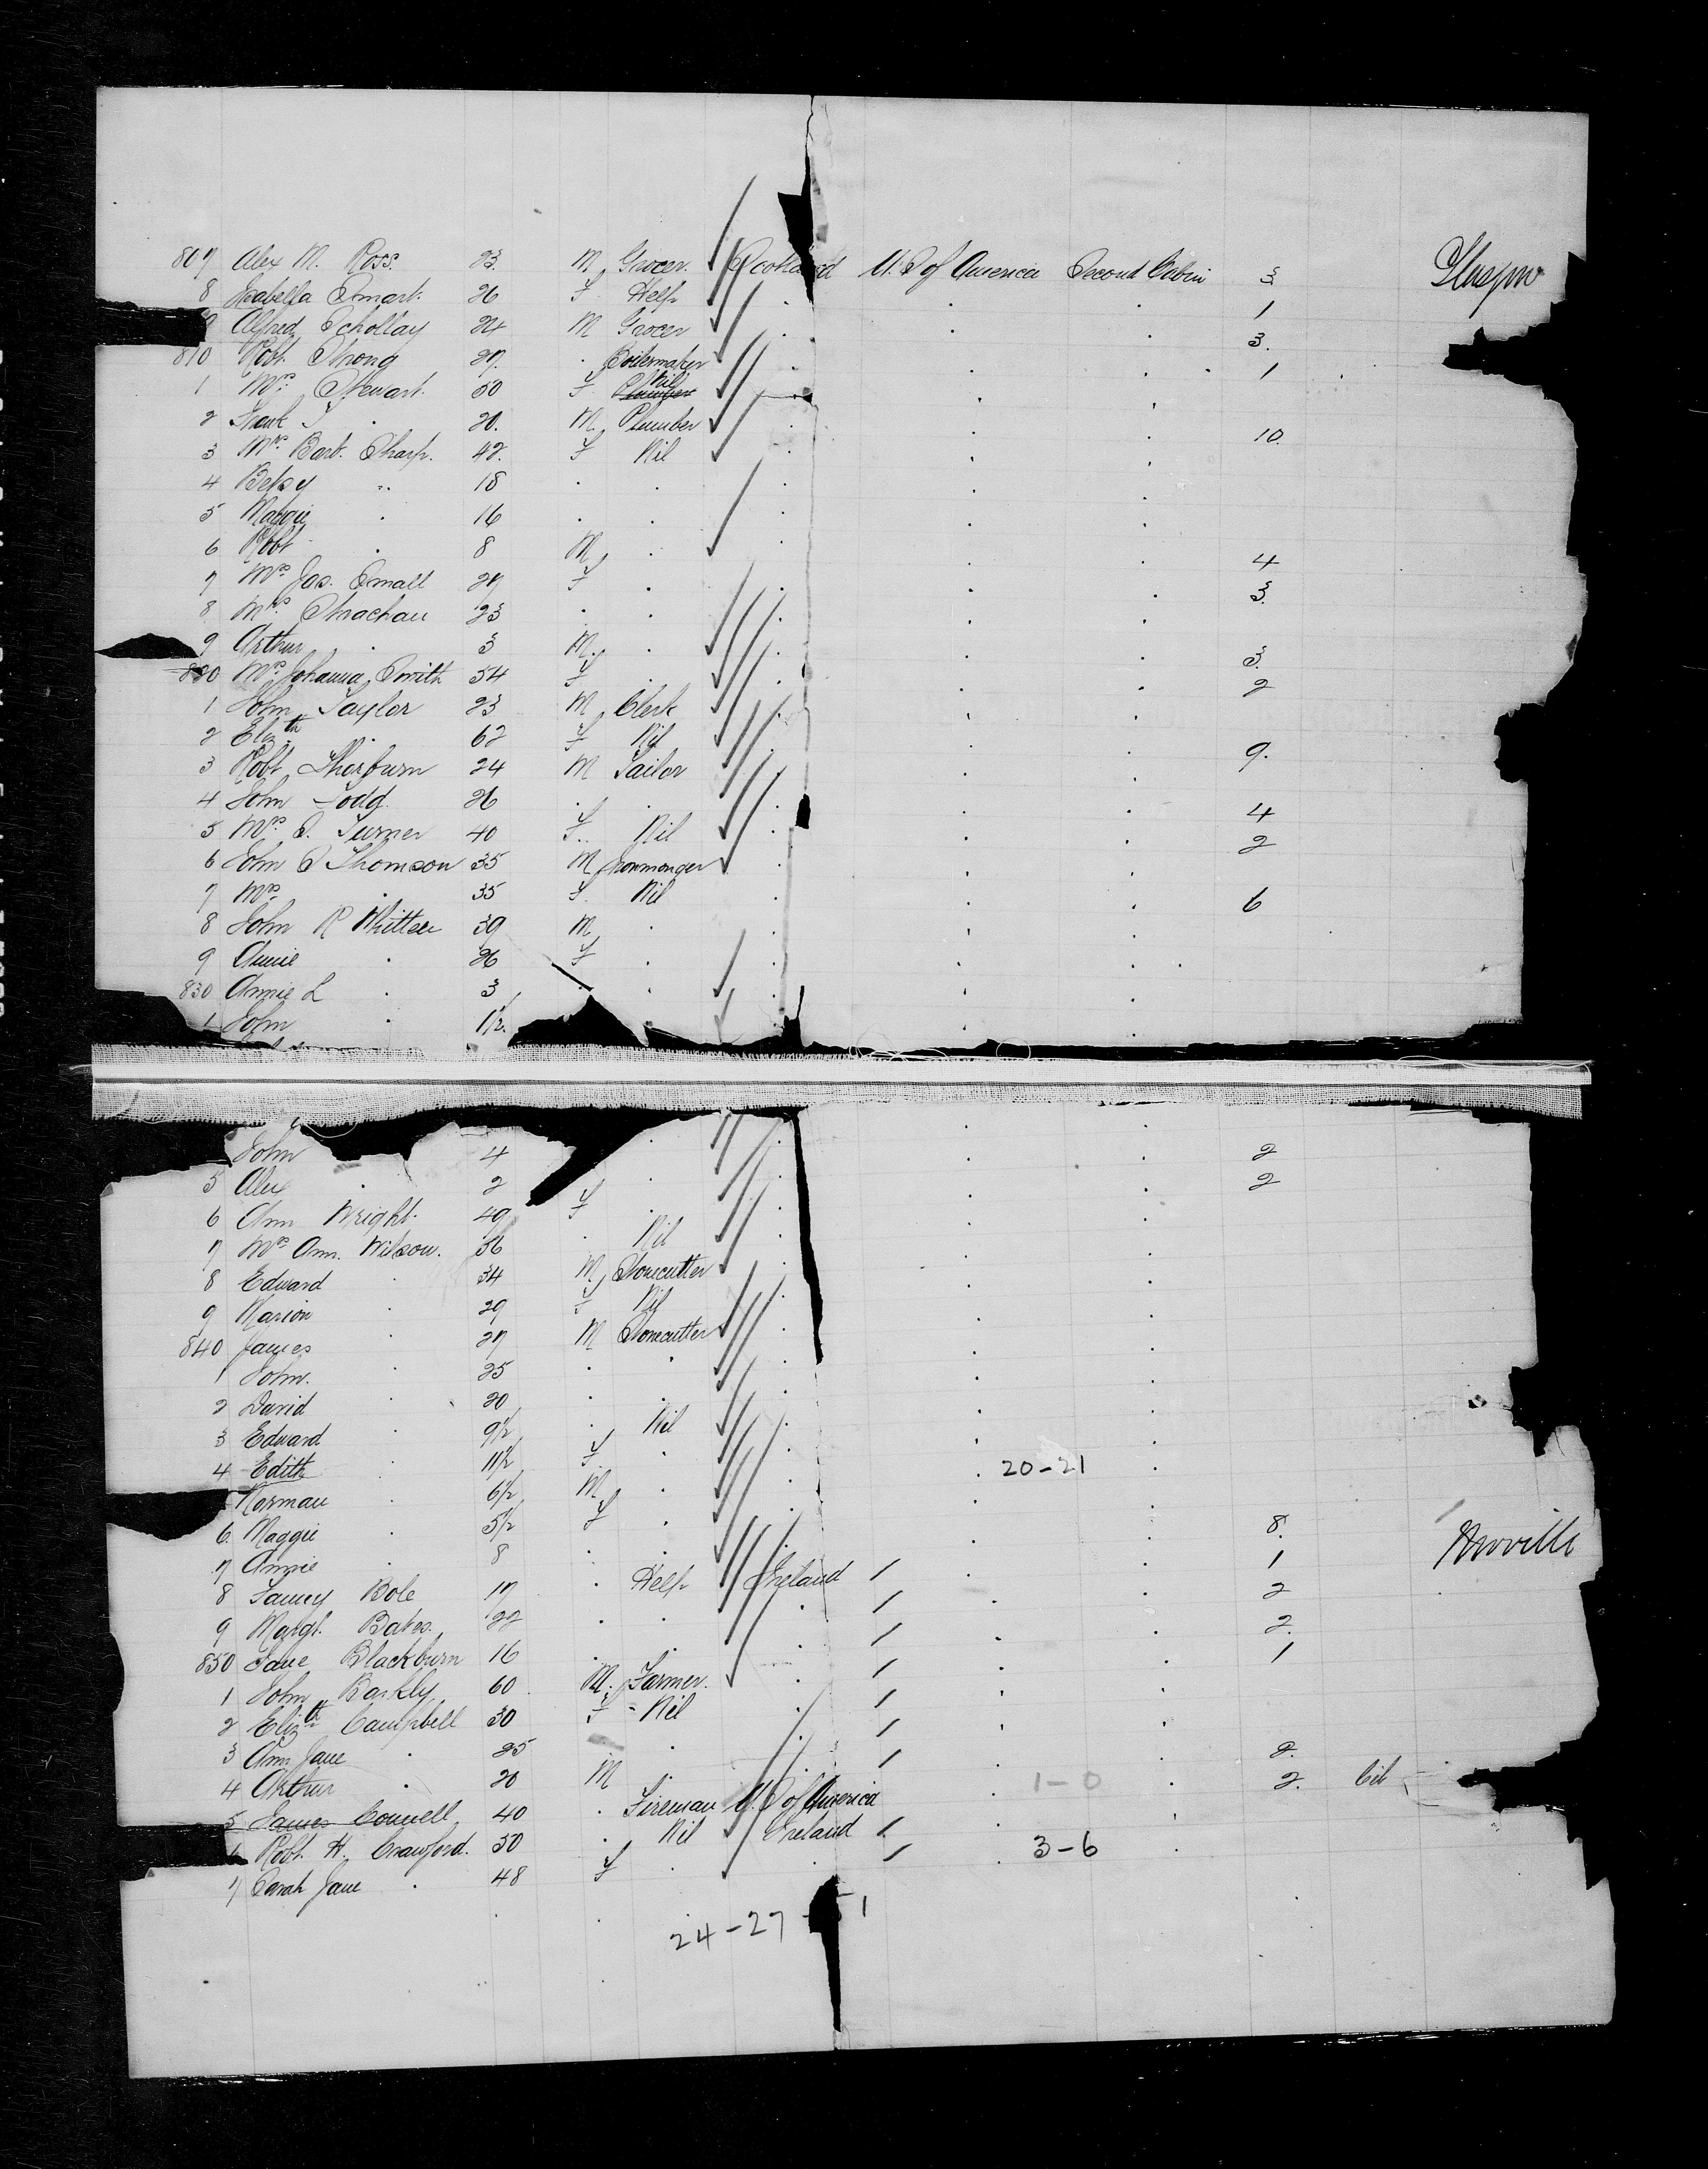 807 Alex M. Ross. 23. M Grocer. Scotland U. S of America Second Cabin 3 Glasgow
8 Isabella Smart. 26 F Help . . . 1
9 Alfred Schollay 24 M Grocer . . . 3.
810 Robt. Strong 27. . Boilermaker . . . 1
1 Mrs. Stewart. 50 F Nil . . .
2 Frank S . 20. M Plumber . . . 10.
3 Mrs Barb. Sharp. 42. F Nil . . .
4 Betsy " 18 . . . . .
5 Maggie . 16 . . . . .
6 Robt . 8 M . . . . 4
7 Mrs Jas. Small 27 F . . . . 3.
8 Mrs. Strachan 23 . . . . .
9 Arthur . 3 M. . . . . 3.
820 Mrs. Johanna Smith 54 F . . . . 2
1 John Taylor 23 M Clerk . . .
2 Elizth . 62 F Nil . . . 9.
3 Robt Thorburn 24 M Tailor . . .
4 John Todd. 26 . . . . . 4
5 Mrs. S. Turner 40 F. Nil . . . 2
6 John S Thomson 35 M Ironmonger . . .
7 Mrs. . 35 F. Nil . . . 6
8 John R Whitten 39 M . . . .
9 Annie . 26 F . . . .
830 Annie L . 3 . . . . .
1 John . 1 1/2. . .
John 4 . . . . 2
5 Alex . 2 . . . . 2
6 Ann Wright. 49 F . . . .
7 Mrs Ann. Wilson. 56 . Nil . . .
8 Edward . 34 M Stonecutter . . .
9 Marion . 29 F Nil . . .
840 James . 27 M Stonecutter . . .
1 John. . 25 . . . . .
2 David . 20 . . . . .
3 Edward . 9 1/2 . Nil . . .
4 Edith . 11 1/2 F . . . 20-21 .
Norman . 6 1/2 M. . . . .
6. Maggie . 5 1/2 F . . . . 8.
7 Annie . 8 . . . . . 1
8 Fanny Bole 17 . Help Ireland / . . 2
9 Margt. Bates. 22 . . . / . . 2.
850 Jane Blackburn 16 . . . / . . 1
1 John Barkly 60 M. Farmer. . / . .
2 Elizth Campbell 30 F - Nil . / . .
3 Ann Jane . 25 . . . / . . 2.
4 Arthur . 20 M . . / 1-0 . 2.
5 James Connell 40 . Fireman U. S of America . .
6 Robt. H. Crawford. 50 . Nil Ireland / . .
7 Sarah Jane . 48 F . . / . 3-6 .
24-27 - 51